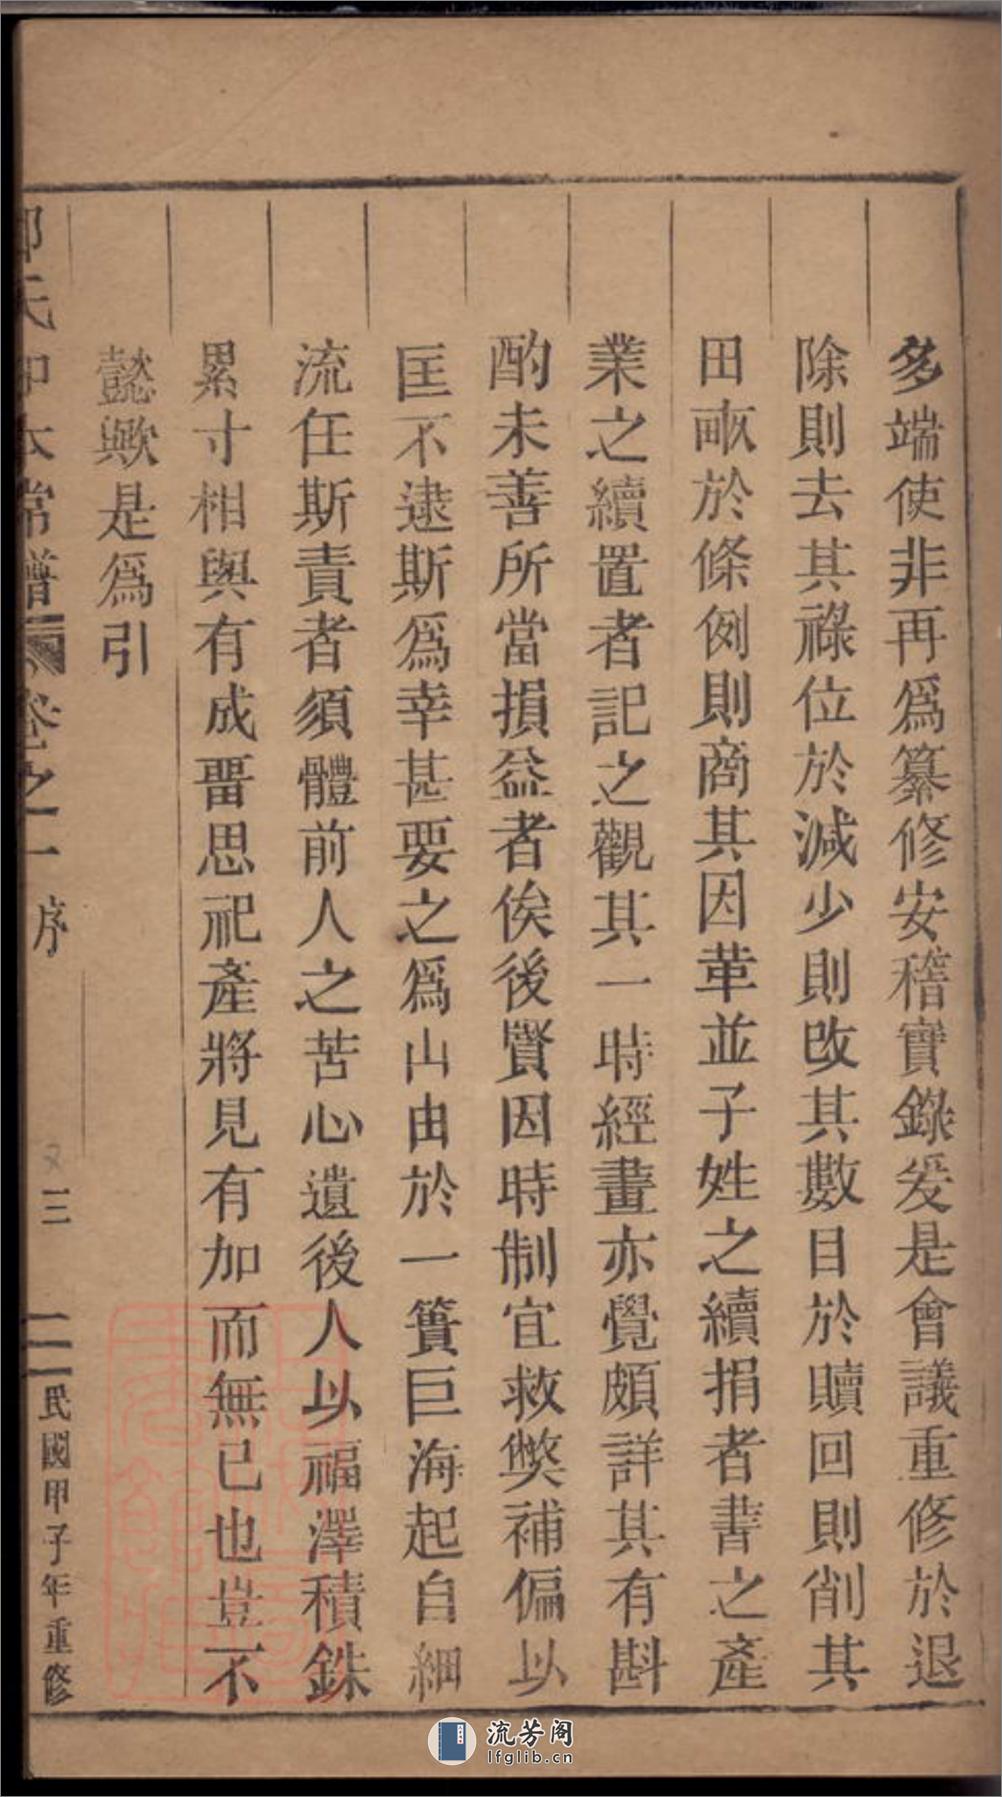 多端使非再爲纂修安稽實錄爰是會議重修於退
除則去其祿位於減少則改其數目於贖回則削其
田畝於條例則商其因革並子姓之續捐者書之產
業之續置者記之觀其一時經畫亦覺頗詳其有斟
酌未善所當損益者俟後賢因時制宜救獘補偏以
匡不逮斯爲幸甚要之爲山由於一簣巨海起自細
流任斯責者須體前人之苦心遺後人以福澤積銖
累寸相與有成畱思祀產將見有加而無已也豈不
懿歟是爲引
氏 常譜 卷之一 序 三 民國甲子年重修
流芳阁
lfglib.cn